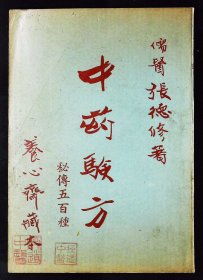 儒醫張德修著
中葯驗方
秘傳五百種
養心齋藏本